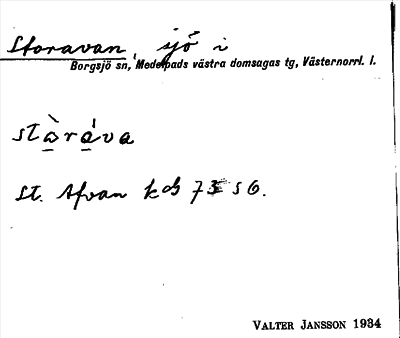 Storavan, sjö i
Borgsjö sn, Medelpads västra domsagas tg, Västernorrl. l.
stàráva
St. Afvan kds 73 S6.
VALTER JANSSON 1934